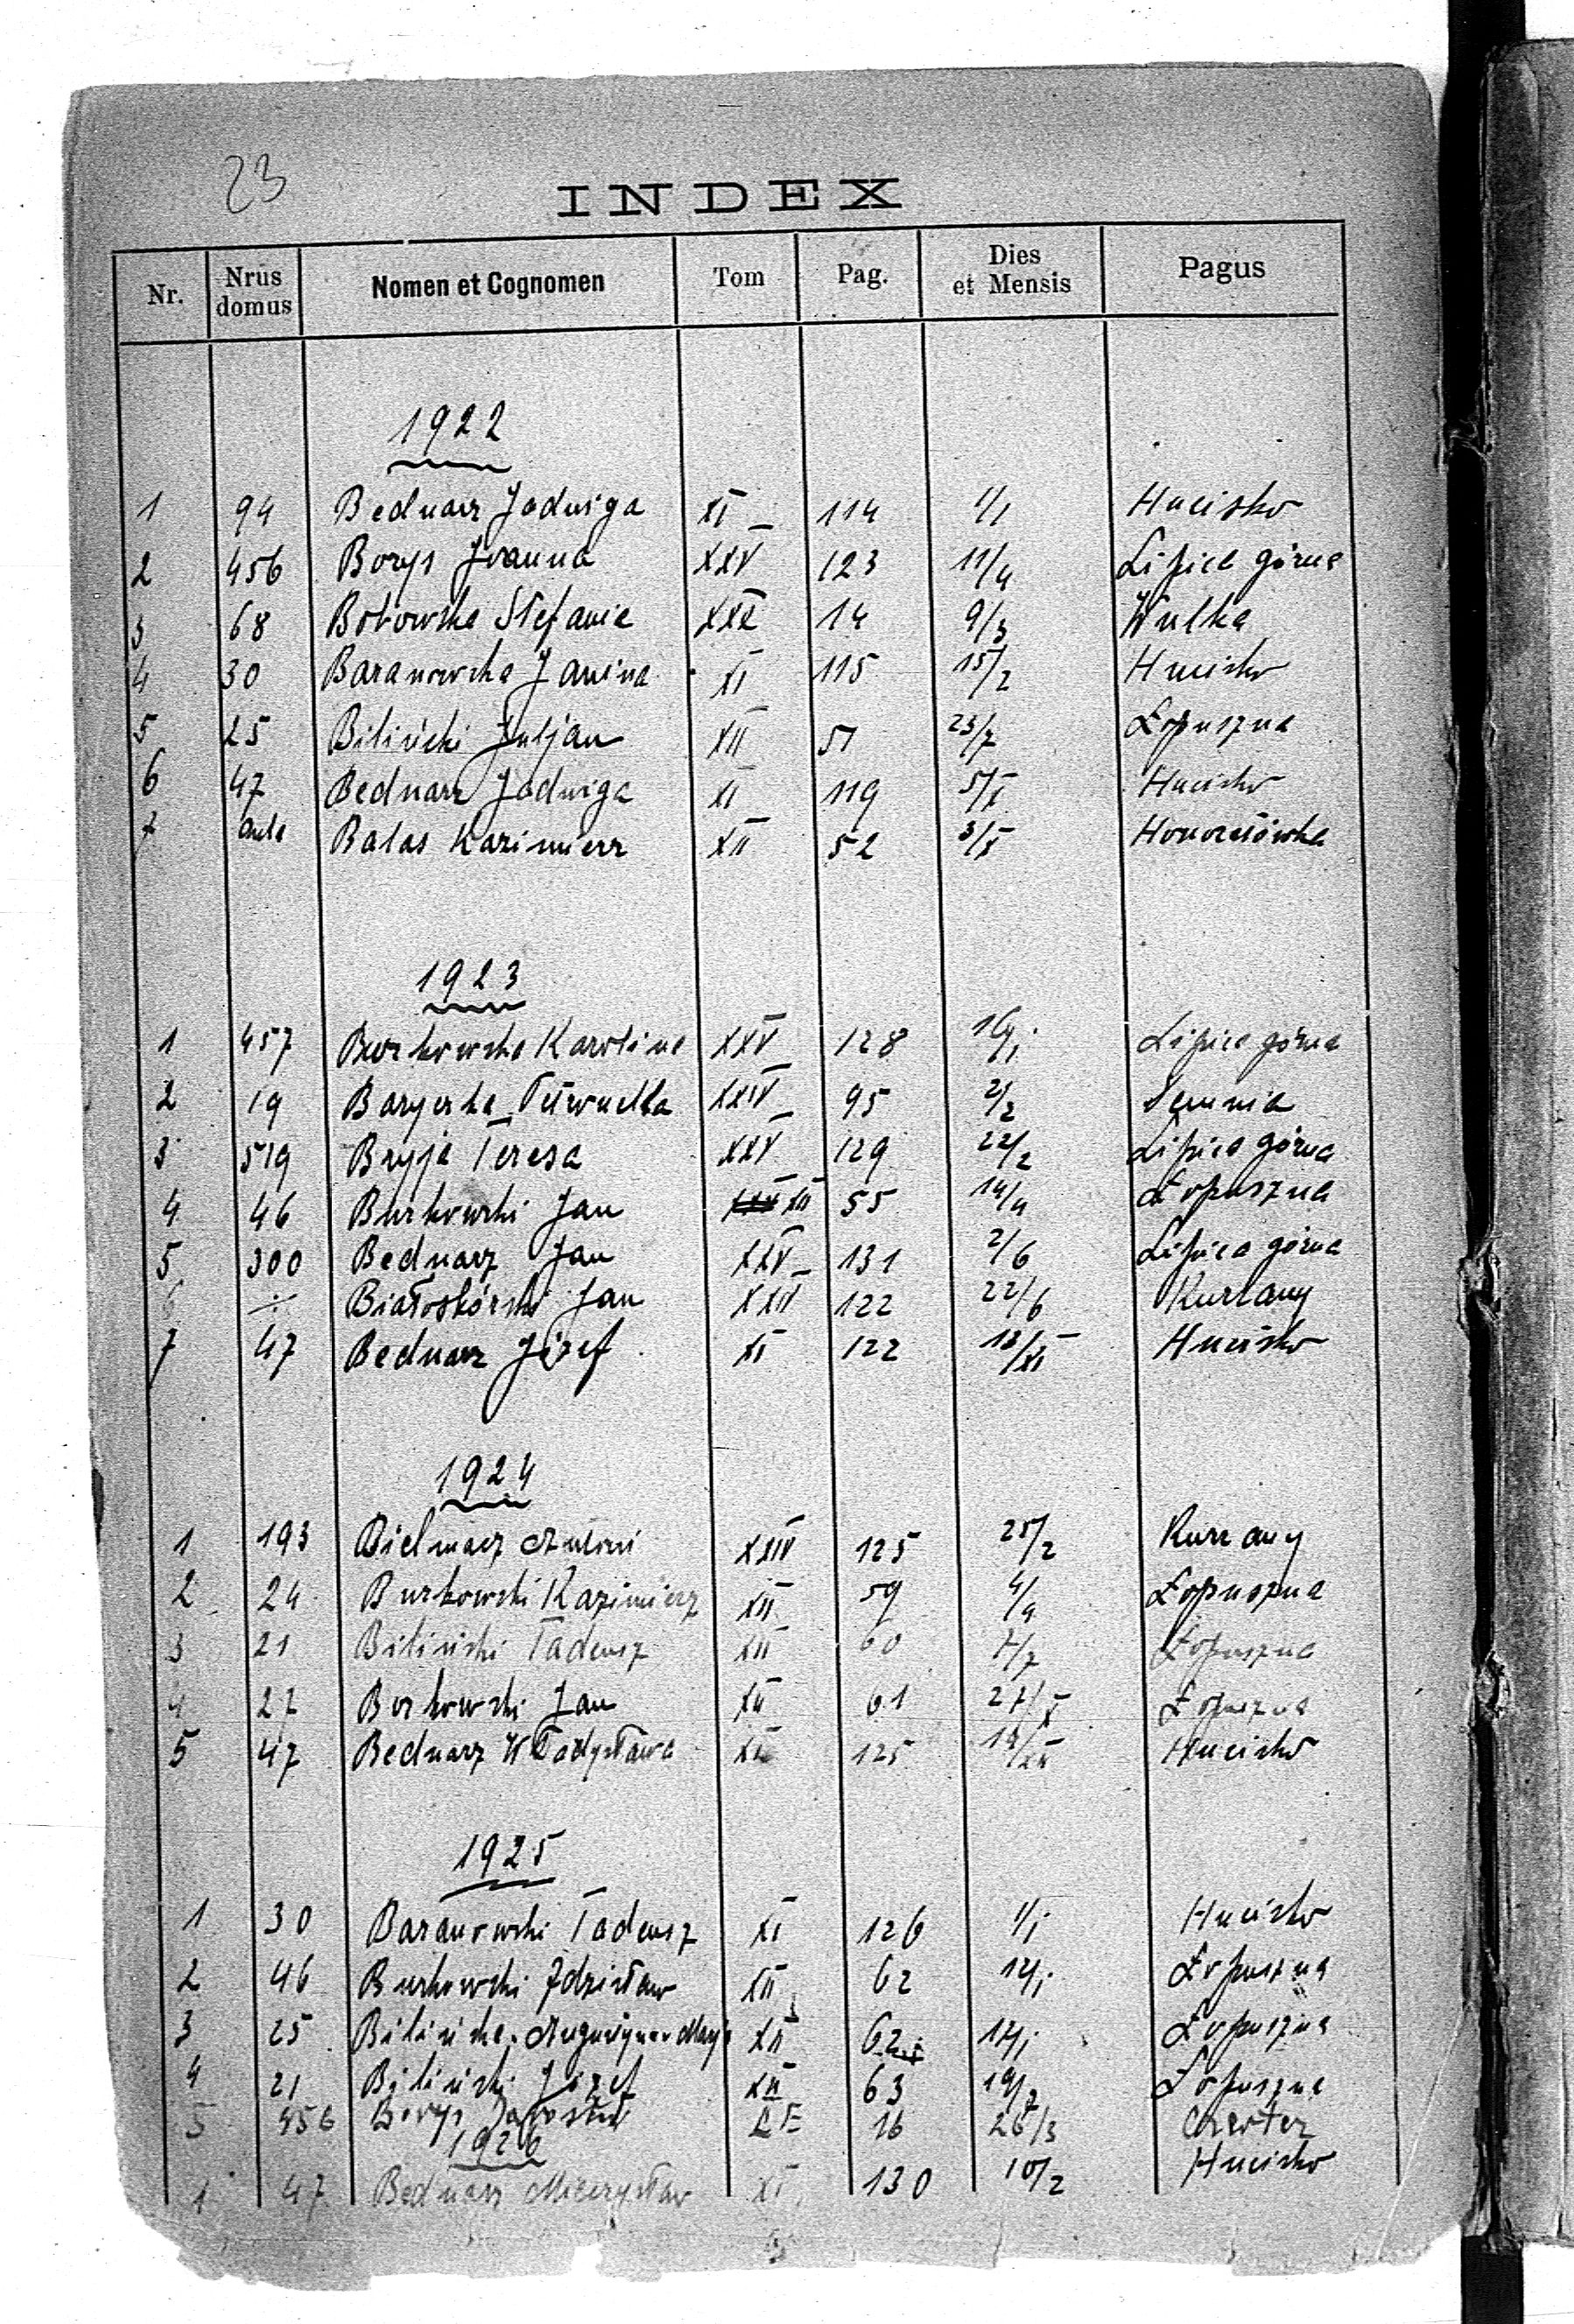 23
INDEX
Nr. Nrus domus Nomen et Cognomen Tom Pag. Dies et Mensis Pagus
1922
1 94 Bednarz Jadwiga XI 114 1/1 Hucisko
2 456 Borys Joanna XXV 123 11/4 Lipica górna
3 68 Stefania XXX 14 9/3 Wulka
4 30 Baranowska Janina XI 115 15/2 Hucisko
5 25 Biliński Juljan XII 51 23/7 Łopuszna
6 47 Bednarz Jadwiga XI 119 5/X Hucisko
7 aula Balas Kazimierz XII 52 3/X Honoratówka
1923
1 457 Burkowska Karolina XXV 128 Lipica górna
2 19 XXIV 95 2/2 Lemnia
3 519 Bryja Teresa XXV 129 22/2 Lipica górna
4 46 Burkowski Jan XII 55 14/4 Łopuszna
5 300 Bednarz Jan XXV 131 2/6 Lipica górna
6 ÷ Białoskórski Jan XXII 122 22/6 Kurzany
7 47 Bednarz Józef XI 122 13/XI Hucisko
1924
1 193 Antoni XXIV 125 25/2 Kurzany
2 24 Burkowski Kazimierz XII 59 4/4 Łopuszna
3 21 Biliński Tadeusz XII 60 7/7 Łopuszna
4 27 Borkowski Jan XII 61 27/X Łopuszna
5 47 Bednarz Władysława XI 125 14/XII Hucisko
1925
1 30 Baranowski Tadeusz XI 126 1/i Hucisko
2 46 Burkowski Zdzisław XII 62 14/i Łopuszna
3 25 Bilińska Maryja XII 62 14/i Łopuszna
4 21 Biliński Józef XII 63 19/7 Łopuszna
5 456 Borys Jarosław 16 26/3
1926
1 47 Bednarz Mieczysław XI 130 10/2 Hucisko